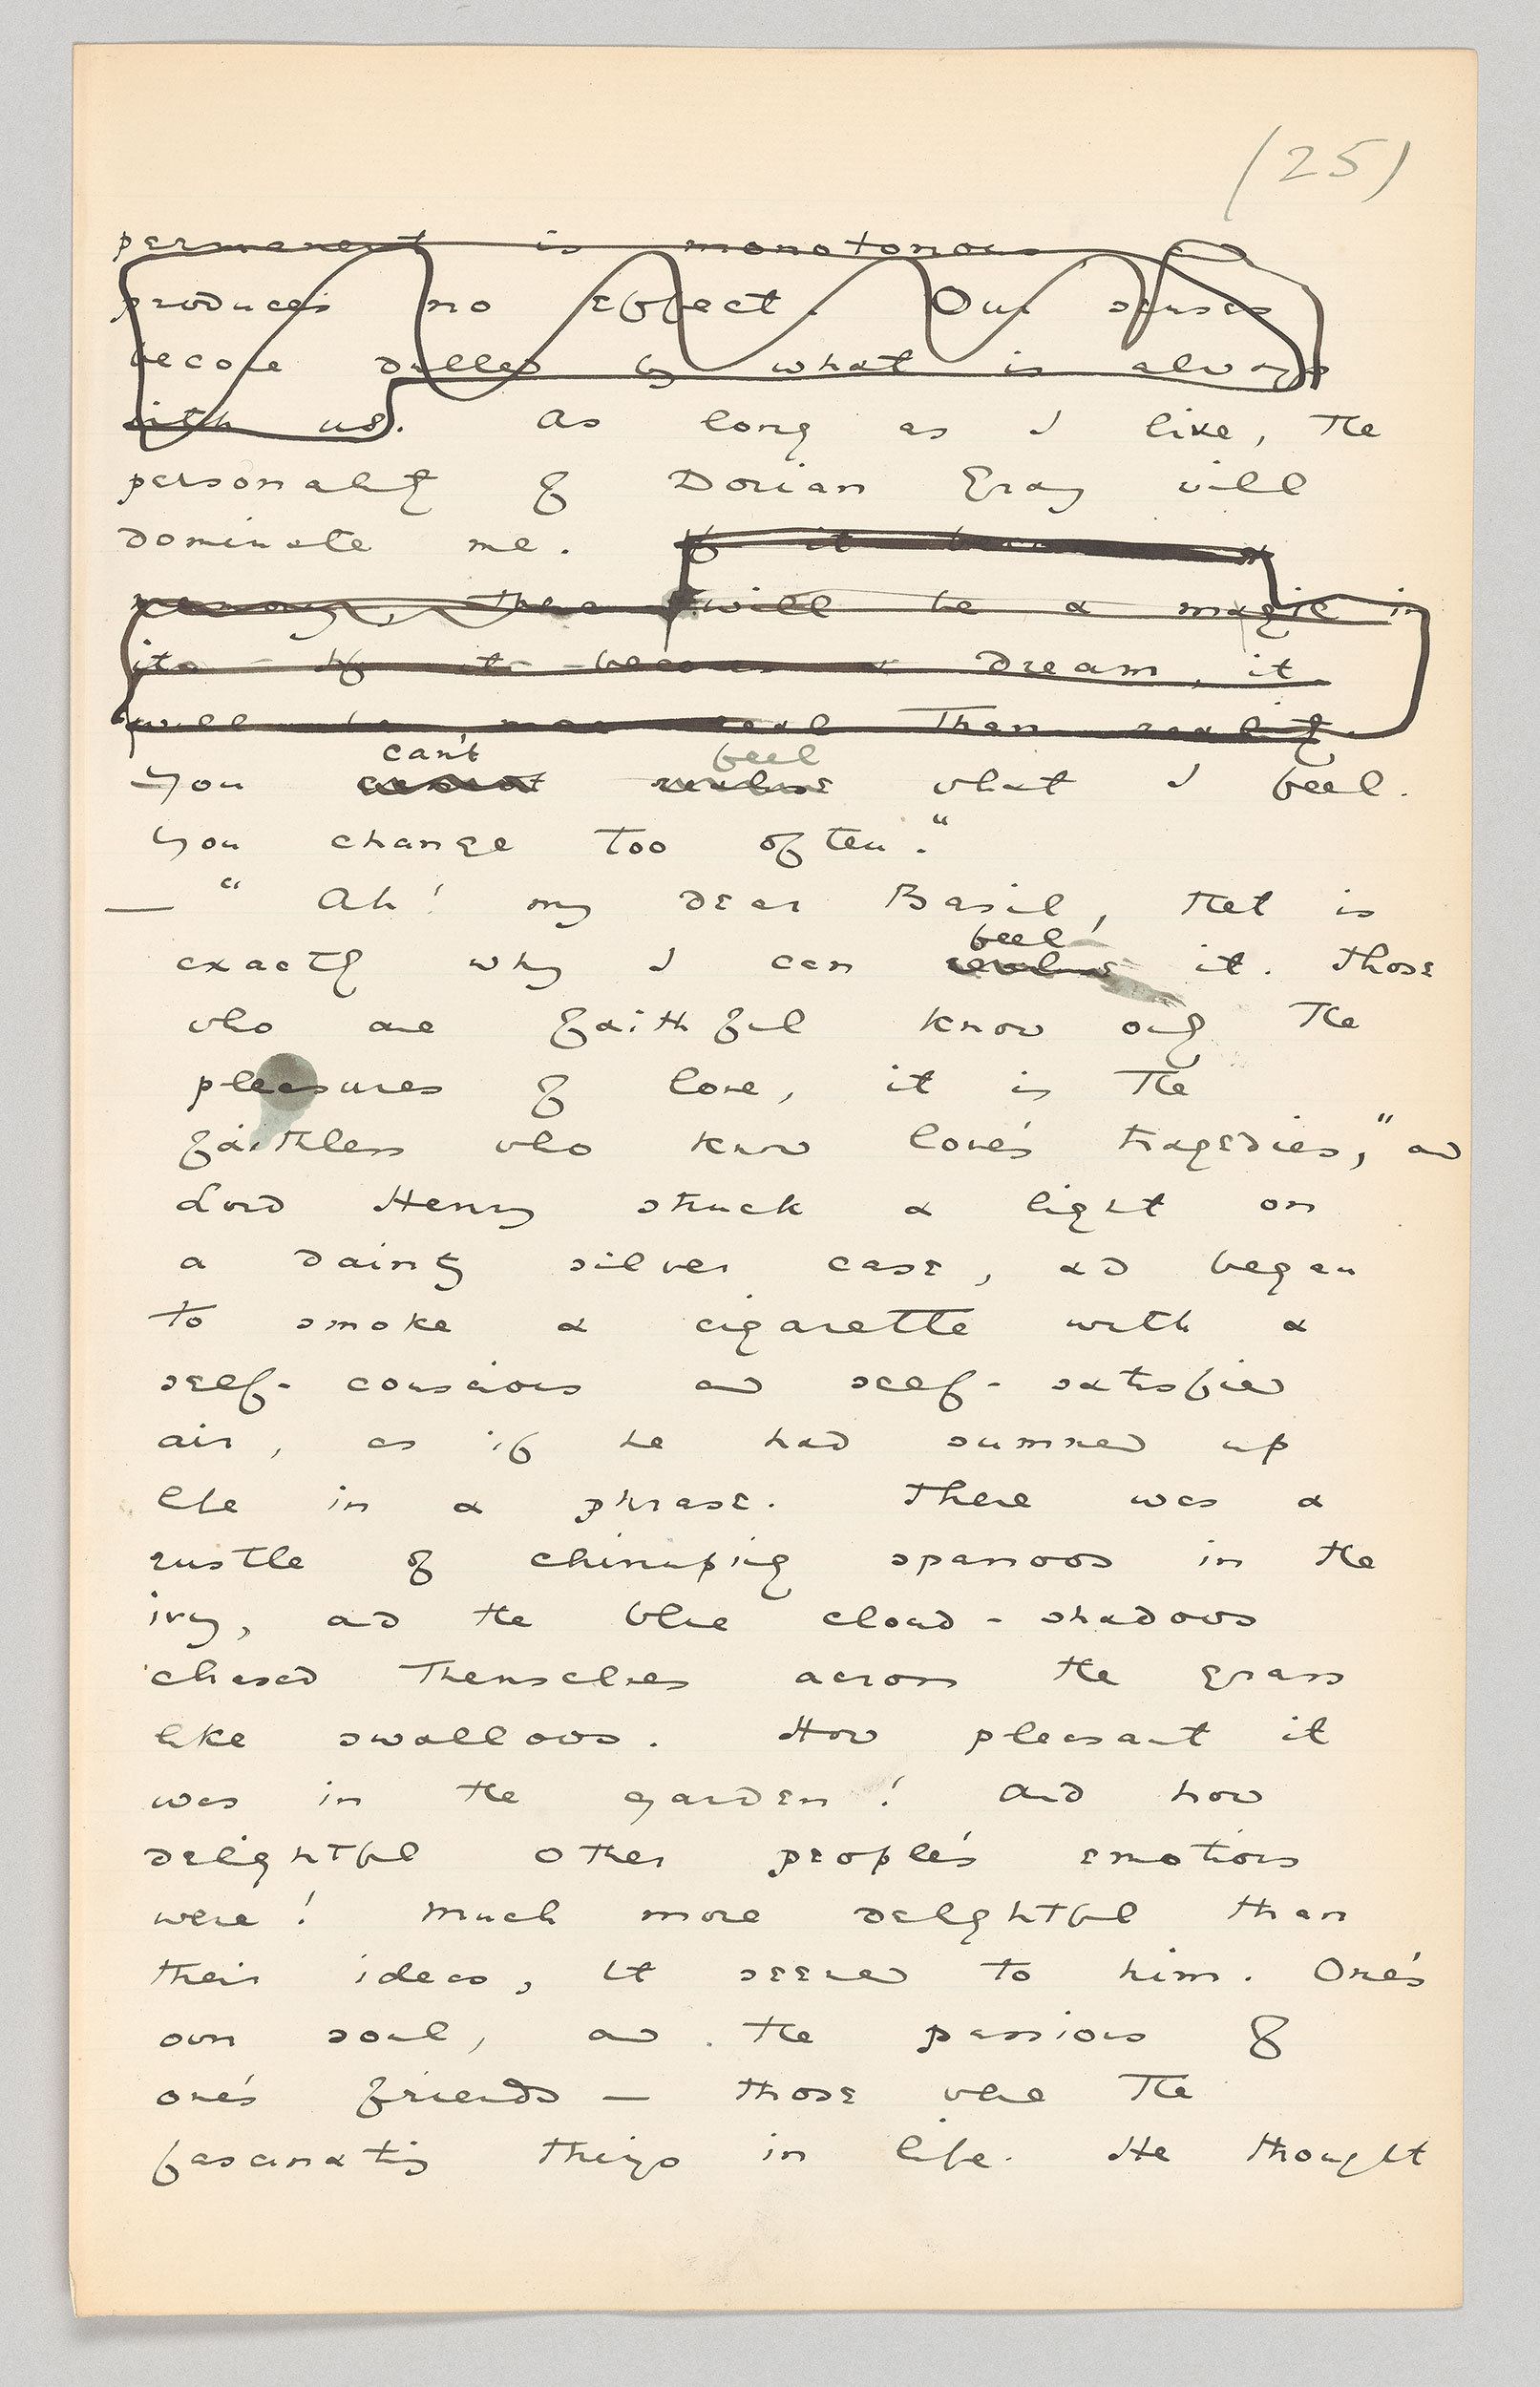 (25)
permanent is monotonous
produces no effect. Our senses
become dulled by what is always
with us. As long as I like, the
personality of Dorian Gray will
dominate me. If it becomes a
memory, there will be a magic in
its - If it becomes a dream, it
will be more real than reality.
can't feel
You cannot realise what I feel.
You change too often."
— " Ah! my dear Basil, that is
feel
exactly why I can realise it. Those
who are faithful know only the
pleasures of love, it is the
faithless who know love's tragedies," and
Lord Henry struck a light on
a dainty silver case, and began
to smoke a cigarette with a
self-conscious and self-satisfied
air, as if he had summed up
life in a phrase. There was a
rustle of chirruping sparrows in the
ivy, and the blue cloud-shadows
chased themselves across the grass
like swallows. How pleasant it
was in the garden! And how
delightful other people's emotions
were! Much more delightful than
their ideas, it seemed to him. One's
own soul, and the passions of
one's friends — those were the
fascinating things in life. He thought